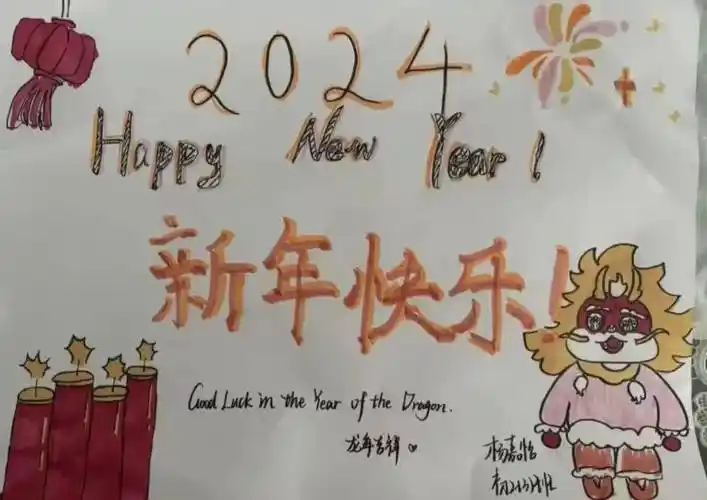 2024
Happy New Year!
新年快乐!
Good Luck in the Year of the Dragon.
龙年吉祥
杨嘉怡